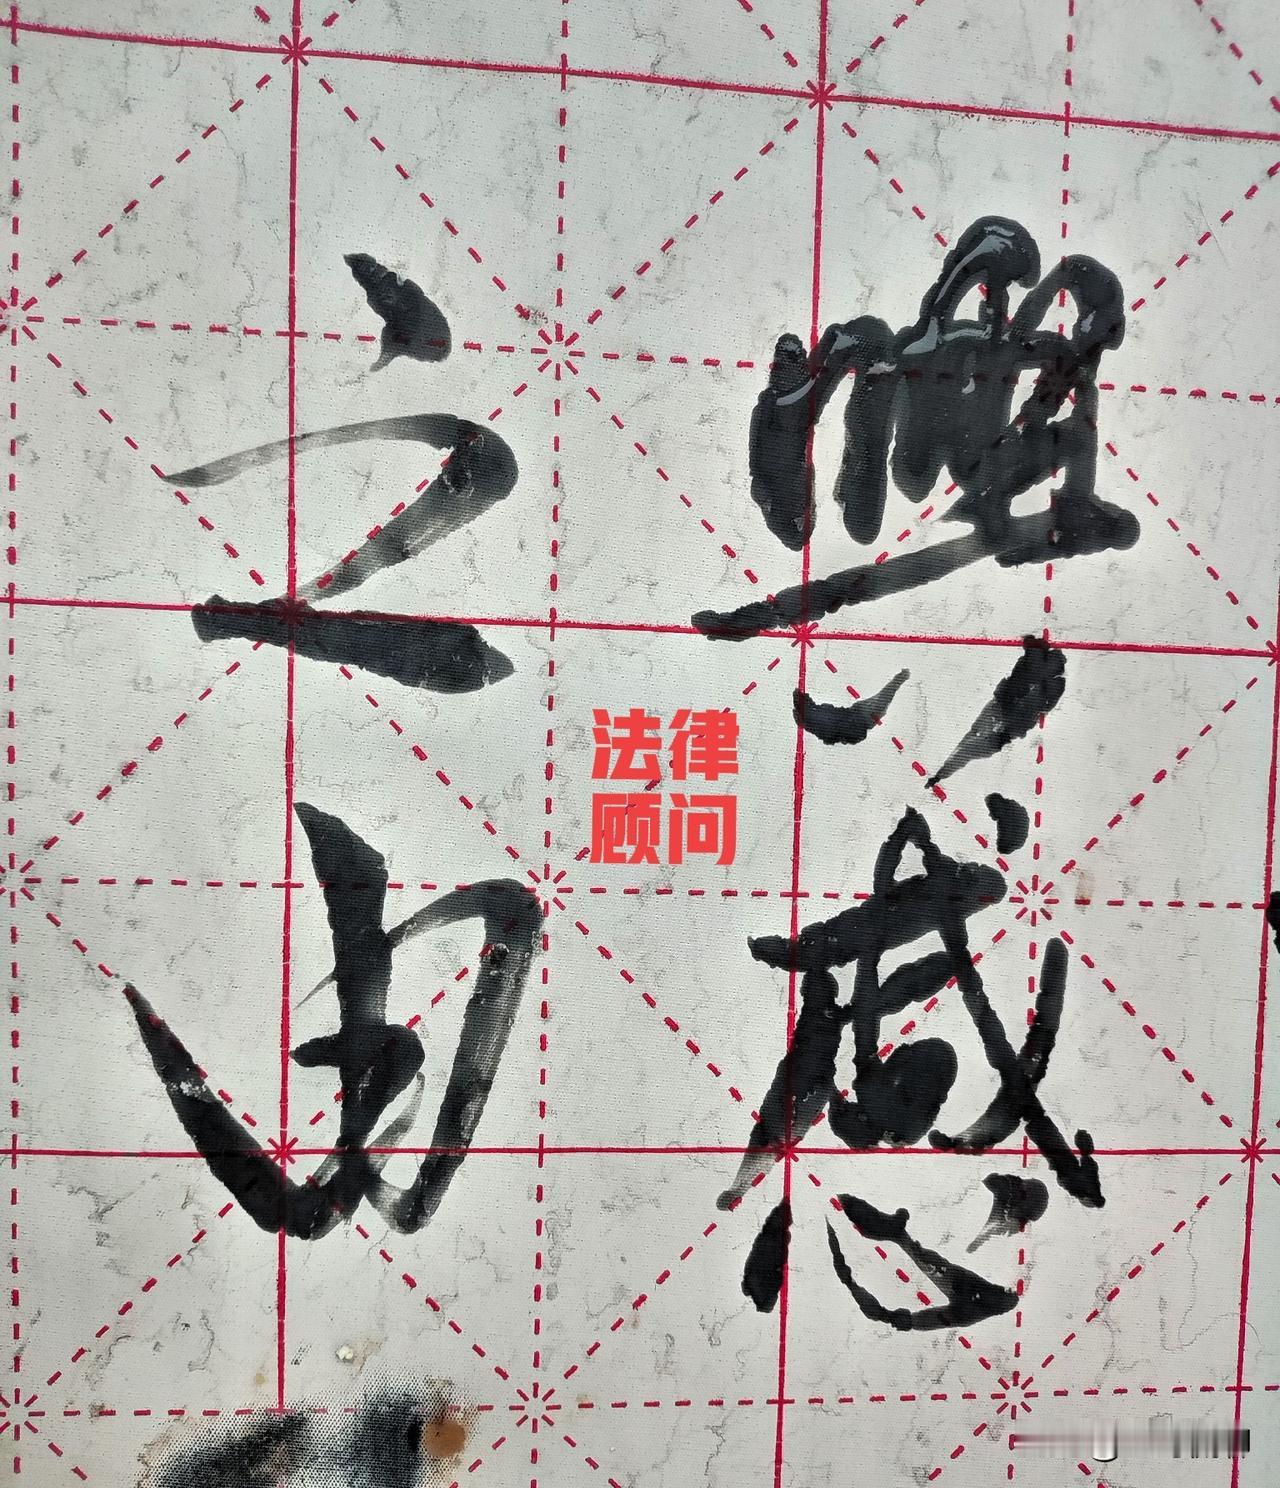 興感
之由
法律
顾问